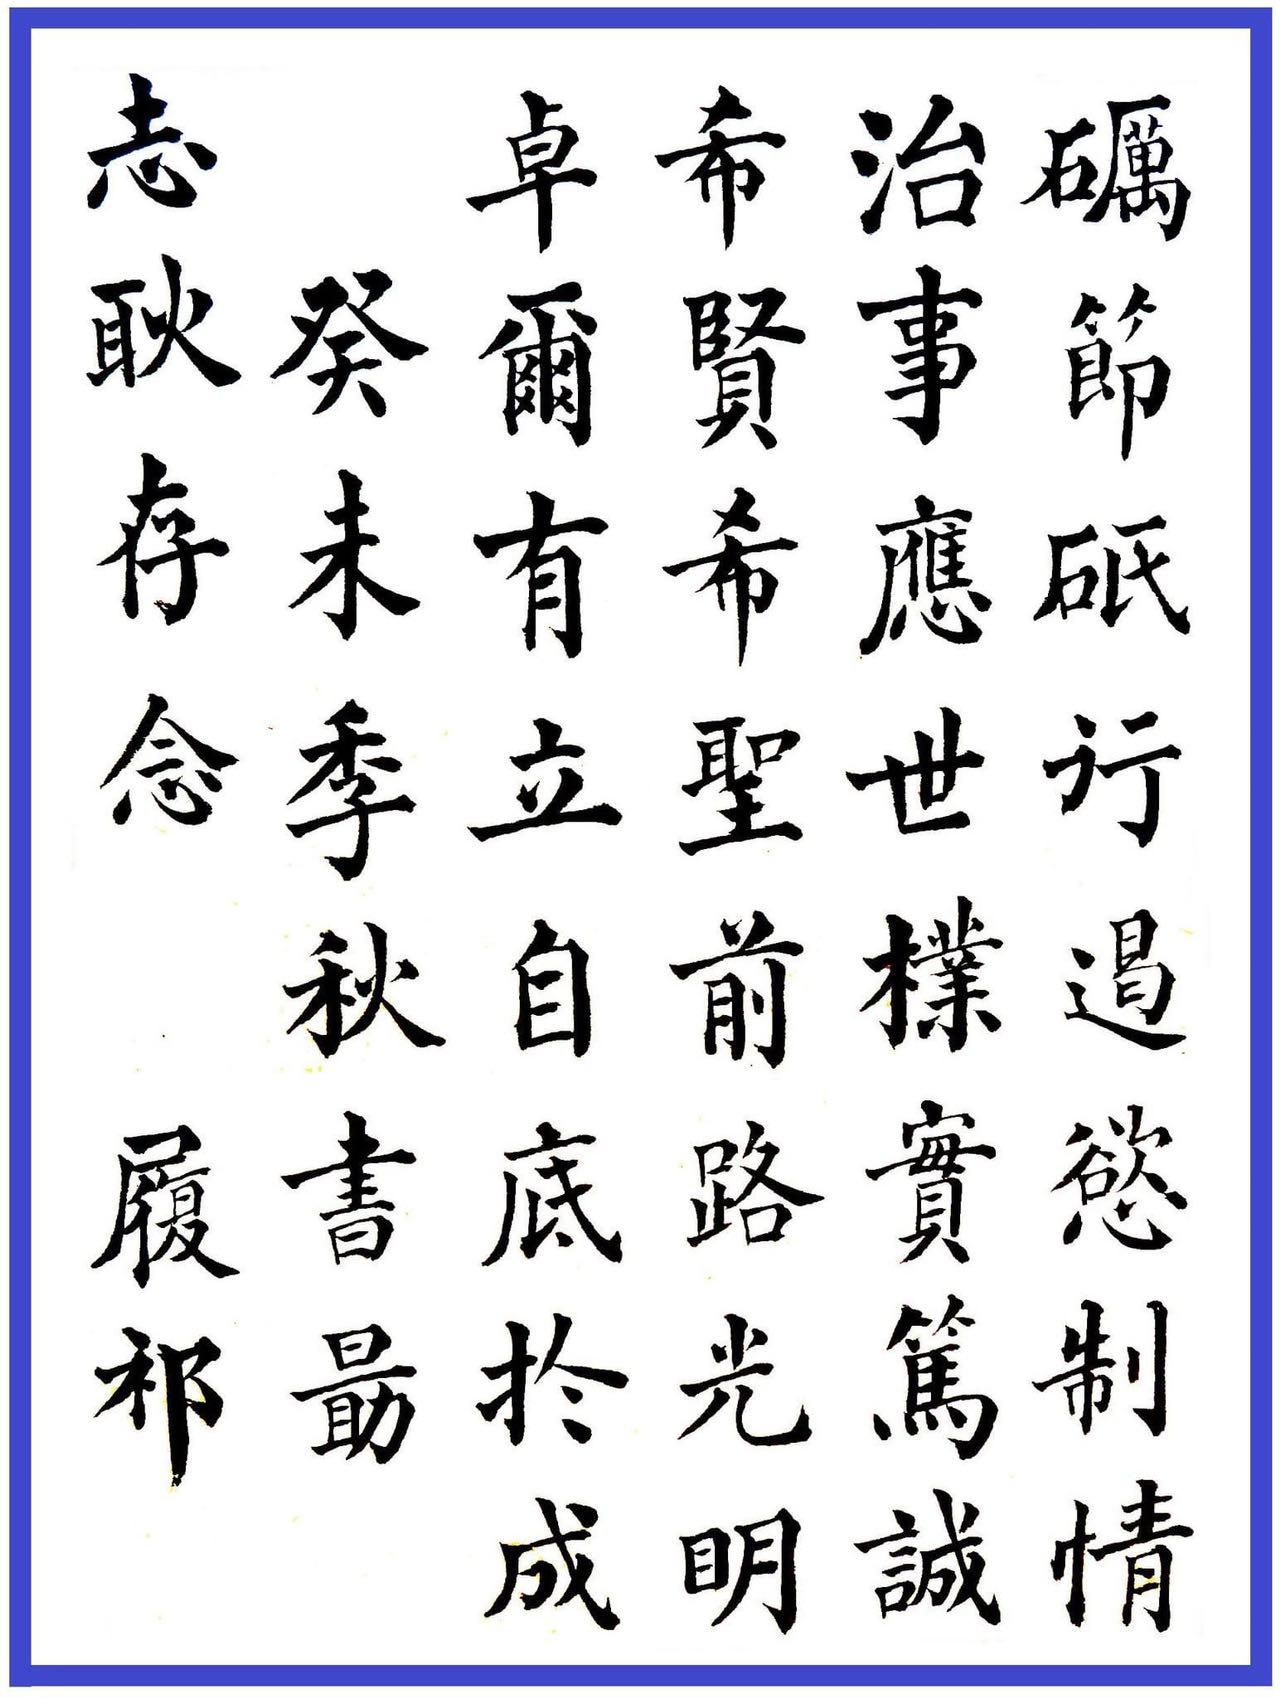 礪節砥行遏慾制情
治事應世樸實篤誠
希賢希聖前路光明
卓爾有立自底於成
癸未季秋書勗
志耿存念 履祁